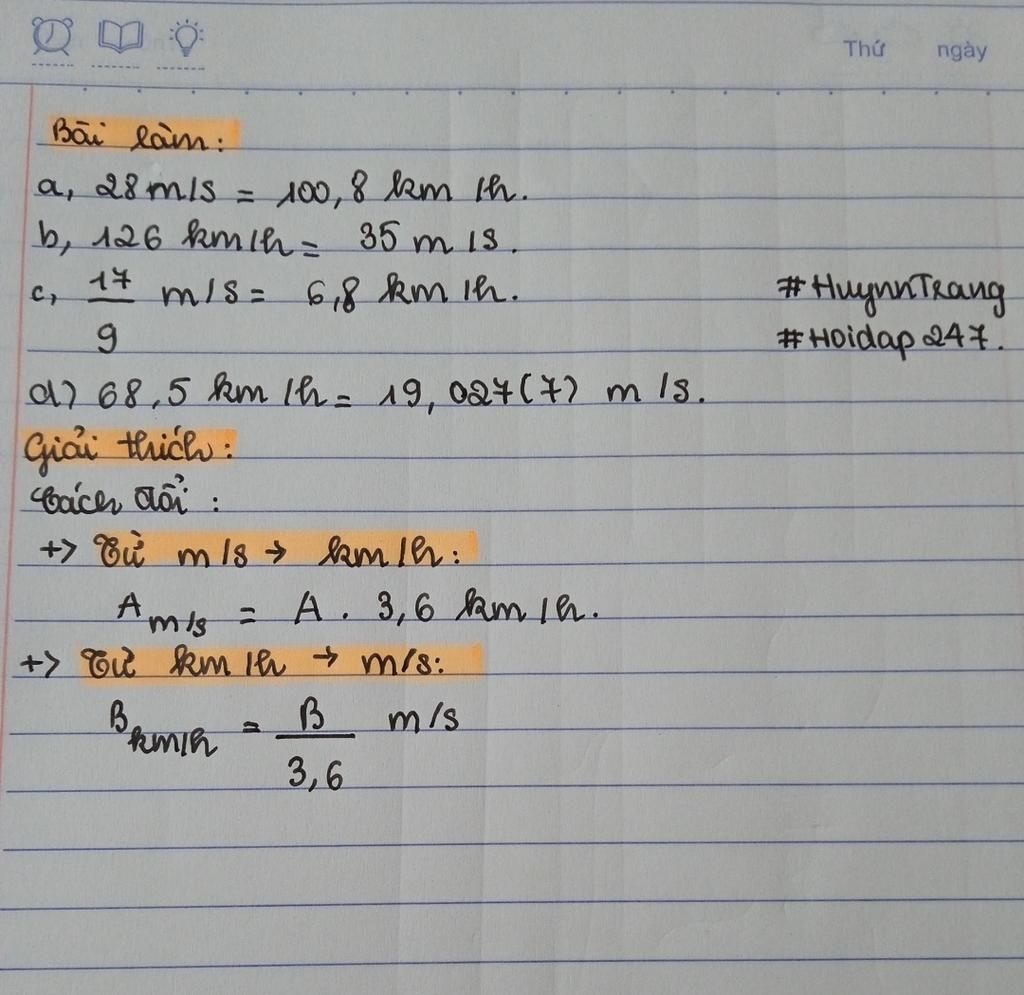 Thứ ngày
Bài làm:
a, 28 m/s = 100,8 km/h.
b, 126 km/h = 35 m/s.
c, 17/9 m/s = 6,8 km/h.
#HuynnTrang
#Hoidap247.
d) 68,5 km/h = 19,027(7) m/s.
Giải thích:
Cách đổi:
+> Từ m/s → km/h:
A m/s = A . 3,6 km/h.
+> Từ km/h → m/s:
B km/h = B/3,6 m/s